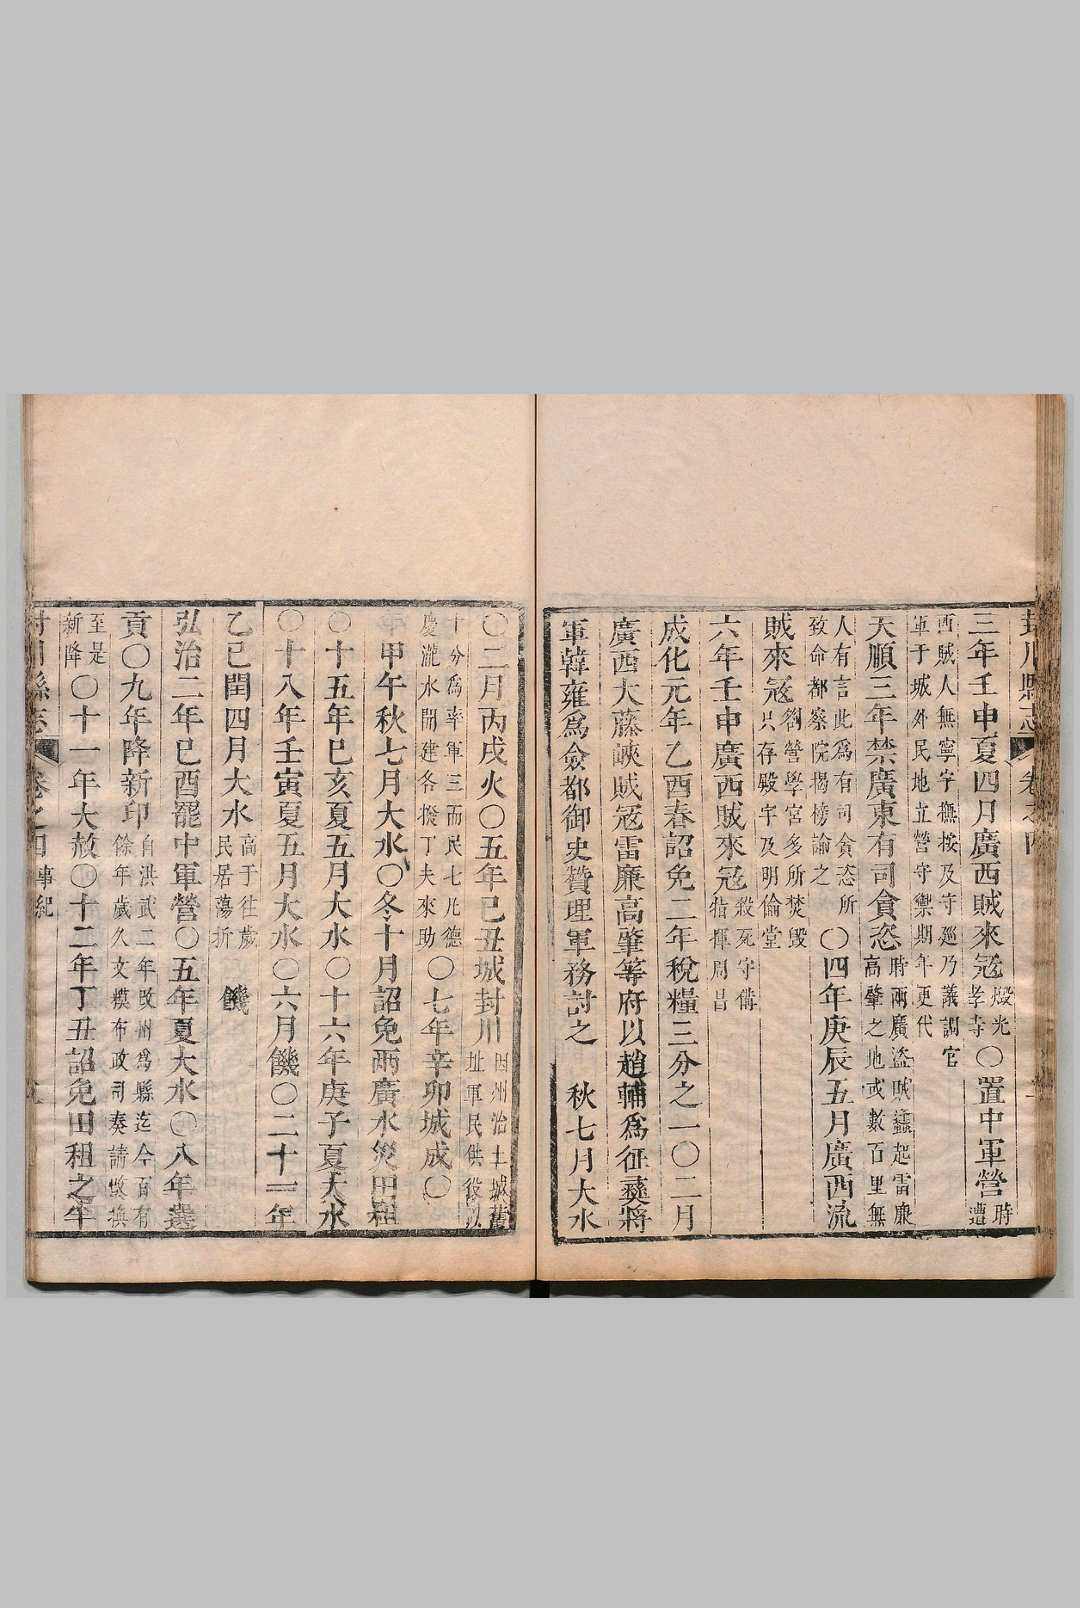 封川縣志 卷之四
三年壬申夏四月廣西賊來冦燬光孝寺〇置中軍營時遭
西賊人無寧字撫按及守廵乃議調官軍于城外民地立營守禦期年更代
天順三年禁廣東有司貪恣時兩廣盗賊蠭起雷廉高肇之地或數百里無
人有言此爲有司貪恣所致命都察院揭榜諭之〇四年庚辰五月廣西流
賊來冦劉營學宮多所焚毁只存殿宇及明倫堂
六年壬申廣西賊來冦殺死守備指揮周昌
成化元年乙酉春詔免二年稅糧三分之一〇二月
廣西大藤峽賊冦雷廉高肇等府以趙輔爲征夷將
軍韓雍爲僉都御史贊理軍務討之 秋七月大水
〇二月丙戌火〇五年己丑城封川因州治土城舊址軍民供役以
十分爲率軍三而民七凡德慶瀧水開建各撥丁夫來助〇七年辛卯城成〇
甲午秋七月大水〇冬十月詔免兩廣水災田租
〇十五年巳亥夏五月大水〇十六年庚子夏大水
〇十八年壬寅夏五月大水〇六月饑〇二十一年
乙巳閏四月大水高于往歲民居蕩折 饑
弘治二年巳酉罷中軍營〇五年夏大水〇八年選
貢〇九年降新印自洪武二年改州爲縣迄今百有餘年歲久文糢布政司奏請煥換
至是新降〇十一年大赦〇十二年丁丑詔免田租之半
封川縣志 卷之四 事紀